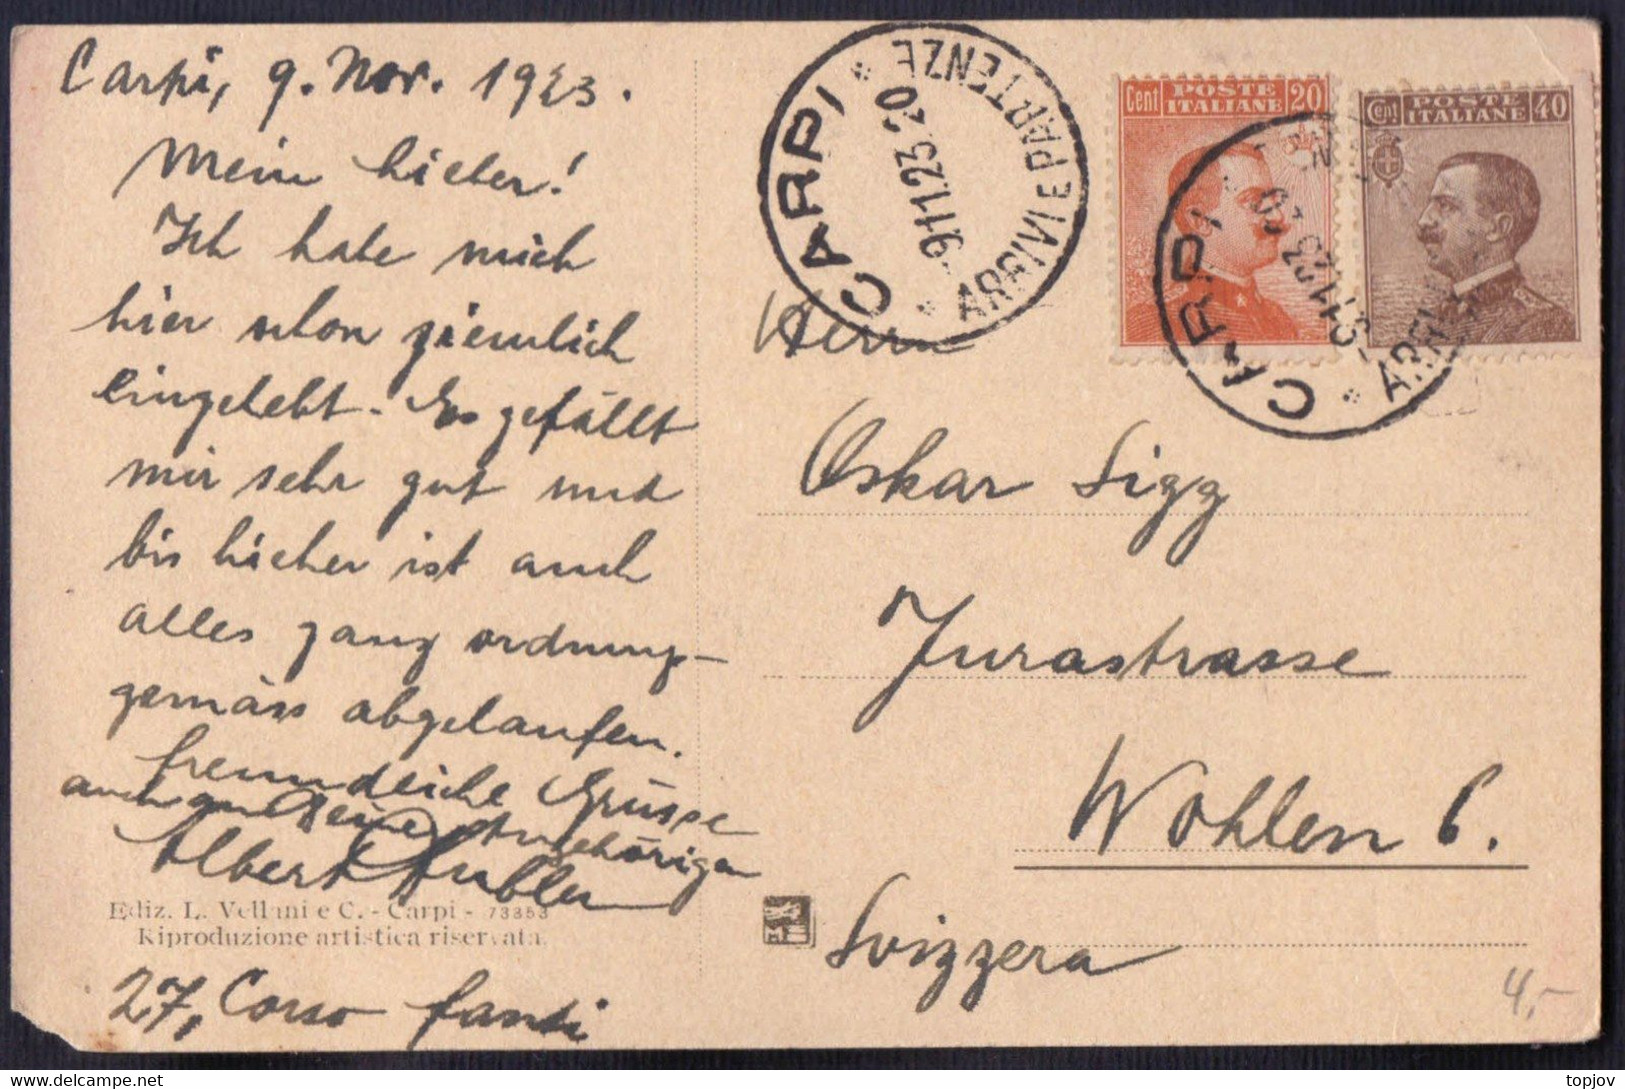 Carpi, 9. Nov. 1923.
Mein Lieber!
Ich habe mich
hier schon ziemlich
eingelebt. Es gefällt
mir sehr gut und
bis hieher ist auch
alles ganz ordnungs-
gemäss abgelaufen.
freundliche Grüsse
auch an Deine Angehörigen
Albert Hubler
Ediz. L. Vellani e C. - Carpi - 73353
Riproduzione artistica riservata.
27, Corso Fanti
CARPI
* ARRIVI E PARTENZE *
9.11.23.20
Cent POSTE ITALIANE 20
Cent POSTE ITALIANE 40
CARPI
* ARRIVI
Herrn
Oskar Sigg
Jurastrasse
Wohlen 6.
Svizzera
4,-
topjov